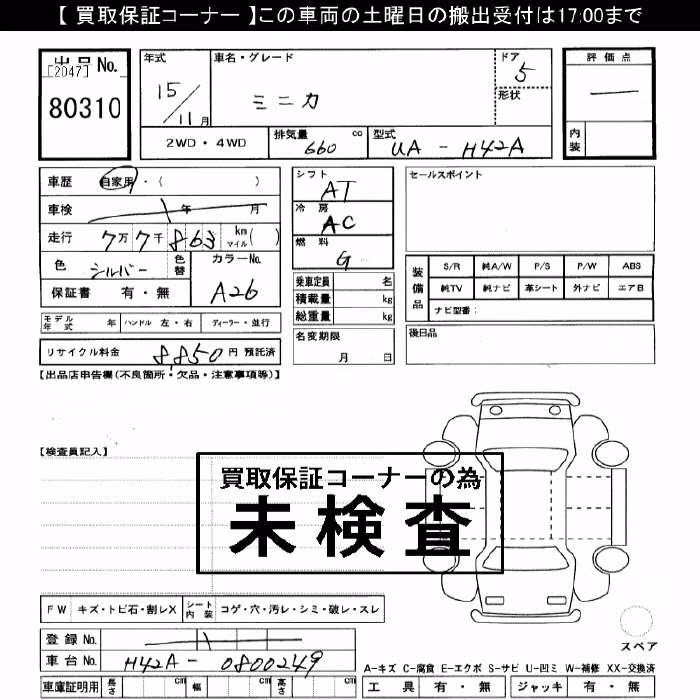 【 買取保証コーナー 】この車両の土曜日の搬出受付は17:00まで
出品 No.
[2047]
80310
年式
15/11月
車名・グレード
ミニカ
ドア
5
形状
評価点
―
内装
2WD・4WD
排気量
660 cc
型式
UA - H42A
車歴 自家用・( )
車検 年 月
走行 7万7千863 km マイル( )
色 シルバー 色替
カラーNo.
A26
保証書 有・無
シフト
AT
冷房
AC
燃料
G
セールスポイント
乗車定員 名
積載量 kg
総重量 kg
装備品
S/R 純A/W P/S P/W ABS
純TV 純ナビ 革シート 外ナビ エアB
ナビ型番：
モデル年式 年 ハンドル 左・右 ディーラー・並行
名変期限
月 日
後日品
リサイクル料金 8850円 預託済
【出品店申告欄(不良箇所・欠品・注意事項等)】
【検査員記入】
買取保証コーナーの為
未検査
FW キズ・トビ石・割レX シート内装 コゲ・穴・汚レ・シミ・破レ・スレ
登録 No.
車台 No. H42A - 0800249
スペア
A-キズ C-腐食 E-エクボ S-サビ U-凹ミ W-補修 XX-交換済
車庫証明用 長さ cm 幅 cm 高さ cm
工具 有・無 ジャッキ 有・無